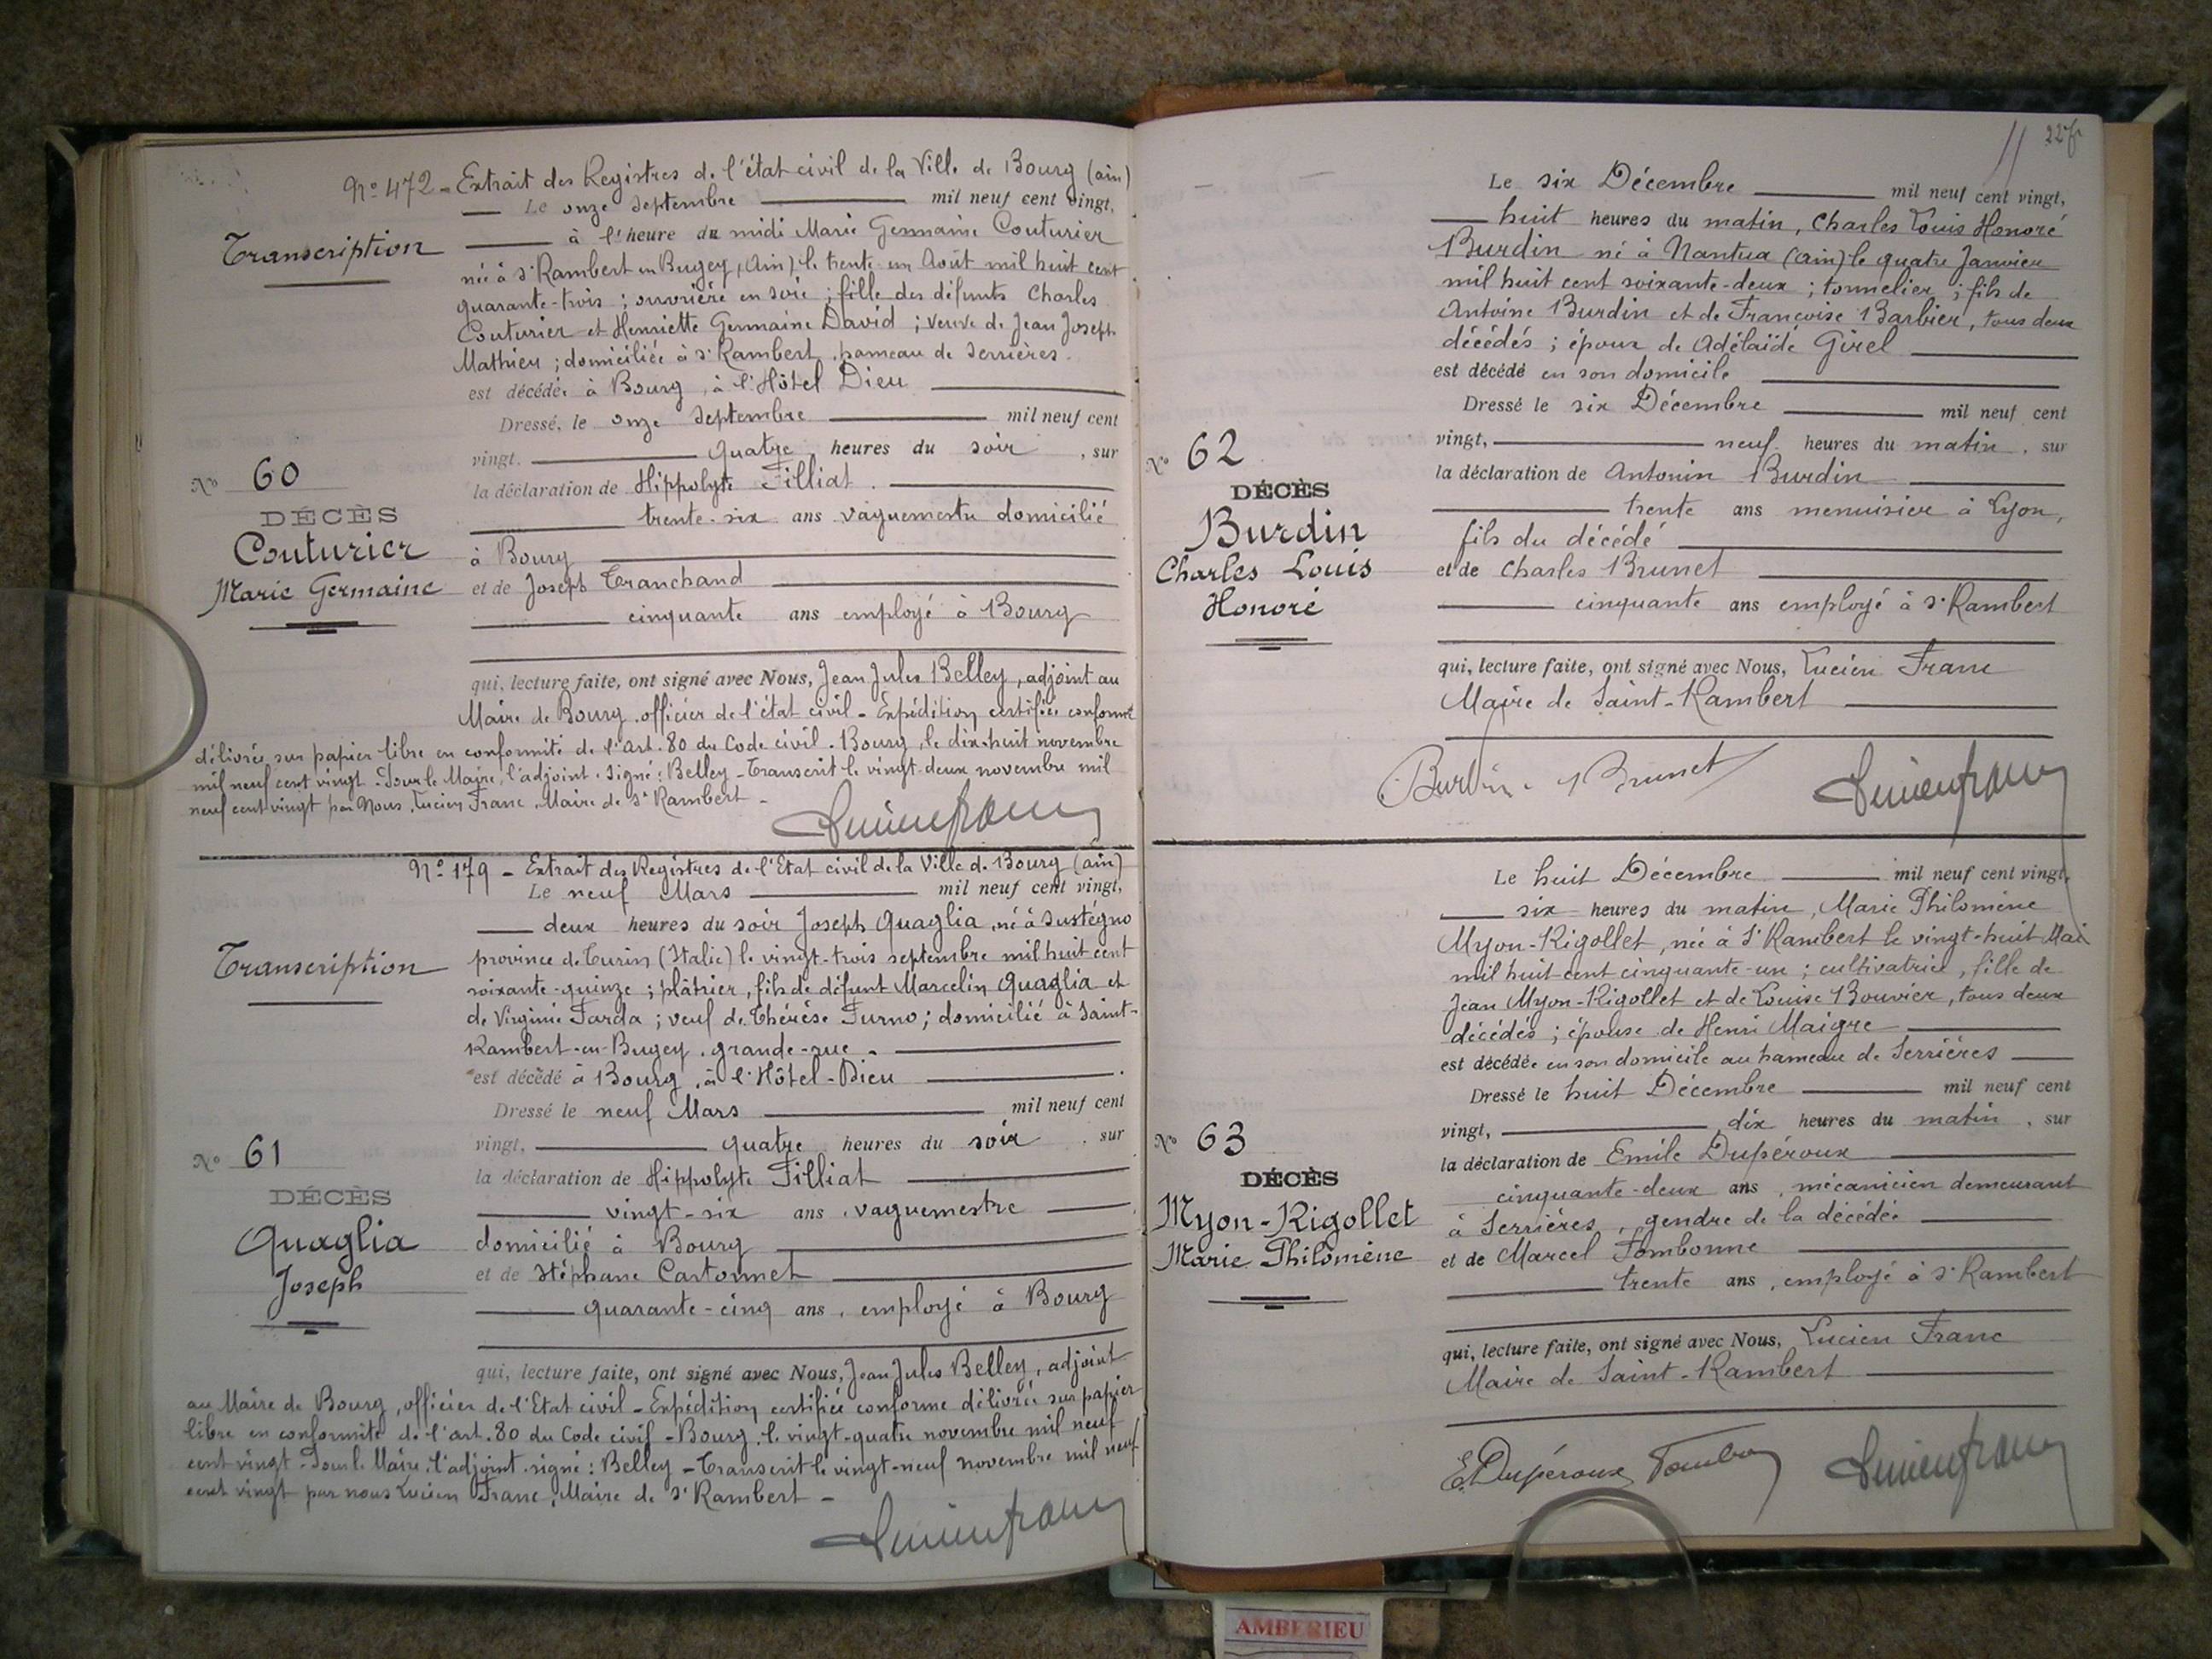 Nº 472 - Extrait des Registres de l'état civil de la Ville de Bourg (ain)
Le onze septembre mil neuf cent vingt,
Transcription
à l'heure de midi Marie Germaine Couturier
née à St Rambert en Bugey, (Ain), le trente un Août mil huit cent
quarante-trois ; ouvrière en soie ; fille des défunts Charles
Couturier et Henriette Germaine David ; veuve de Jean Joseph
Mathieu ; domiciliée à St Rambert, hameau de Serrières.
est décédée à Bourg, à l'Hôtel Dieu
Dressé, le onze septembre mil neuf cent
vingt. quatre heures du soir, sur
Nº 60
la déclaration de Hippolyte Filliat.
DÉCÈS
trente-six ans vaguemestre domicilié
Couturier
à Bourg
Marie Germaine
et de Joseph Tranchand
cinquante ans employé à Bourg
qui, lecture faite, ont signé avec Nous, Jean Jules Belley, adjoint au
Maire de Bourg, officier de l'état civil - Expédition certifiée conforme
délivrée sur papier libre en conformité de l'art. 80 du Code civil. Bourg, le dix-huit novembre
mil neuf cent vingt - Pour le Maire, l'adjoint. signé : Belley - Transcrit le vingt-deux novembre mil
neuf cent vingt par Nous, Lucien Franc, Maire de St Rambert -
Lucien Franc
Nº 179 - Extrait des Registres de l'Etat civil de la Ville de Bourg (ain)
Le neuf Mars mil neuf cent vingt,
deux heures du soir Joseph Quaglia, né à Sustégno
Transcription
province de Turin (Italie) le vingt-trois septembre mil huit cent
soixante-quinze ; plâtrier, fils de défunt Marcelin Quaglia et
de Virginie Farda ; veuf de Thérèse Furno ; domicilié à Saint-
Rambert-en-Bugey, grande-rue.
est décédé à Bourg, à l'Hôtel-Dieu
Dressé le neuf Mars mil neuf cent
vingt, quatre heures du soir, sur
Nº 61
la déclaration de Hippolyte Filliat
DÉCÈS
vingt-six ans, vaguemestre
Quaglia
domicilié à Bourg
Joseph
et de Stéphane Cartonnet
quarante-cinq ans, employé à Bourg
qui, lecture faite, ont signé avec Nous, Jean Jules Belley, adjoint
au Maire de Bourg, officier de l'Etat civil - Expédition certifiée conforme délivrée sur papier
libre en conformité de l'art. 80 du Code civil - Bourg, le vingt-quatre novembre mil neuf
cent vingt - Pour le Maire, l'adjoint. signé : Belley - Transcrit le vingt-neuf novembre mil neuf
cent vingt par nous Lucien Franc, Maire de St Rambert -
Lucien Franc
Le six Décembre mil neuf cent vingt,
huit heures du matin, Charles Louis Honoré
Burdin né à Nantua (ain) le quatre Janvier
mil huit cent soixante-deux ; tonnelier ; fils de
Antoine Burdin et de Françoise Barbier, tous deux
décédés ; époux de Adélaïde Girel
est décédé en son domicile
Dressé le six Décembre mil neuf cent
vingt, neuf heures du matin, sur
Nº 62
la déclaration de Antonin Burdin
DÉCÈS
trente ans menuisier à Lyon,
Burdin
fils du décédé
Charles Louis
et de Charles Brunet
Honoré
cinquante ans employé à St Rambert
qui, lecture faite, ont signé avec Nous, Lucien Franc
Maire de Saint-Rambert
Burdin Brunet Lucien Franc
Le huit Décembre mil neuf cent vingt,
six heures du matin, Marie Philomène
Myon-Rigollet, née à St Rambert le vingt-huit Mai
mil huit cent cinquante-un ; cultivatrice, fille de
Jean Myon-Rigollet et de Louise Bouvier, tous deux
décédés ; épouse de Henri Maigre
est décédée en son domicile au hameau de Serrières
Dressé le huit Décembre mil neuf cent
vingt, dix heures du matin, sur
Nº 63
la déclaration de Emile Dupéroux
DÉCÈS
cinquante-deux ans, mécanicien demeurant
Myon-Rigollet
à Serrières, gendre de la décédée
Marie Philomène
et de Marcel Fombonne
trente ans, employé à St Rambert
qui, lecture faite, ont signé avec Nous, Lucien Franc
Maire de Saint-Rambert
E. Dupéroux Lucien Franc
AMBERIEU